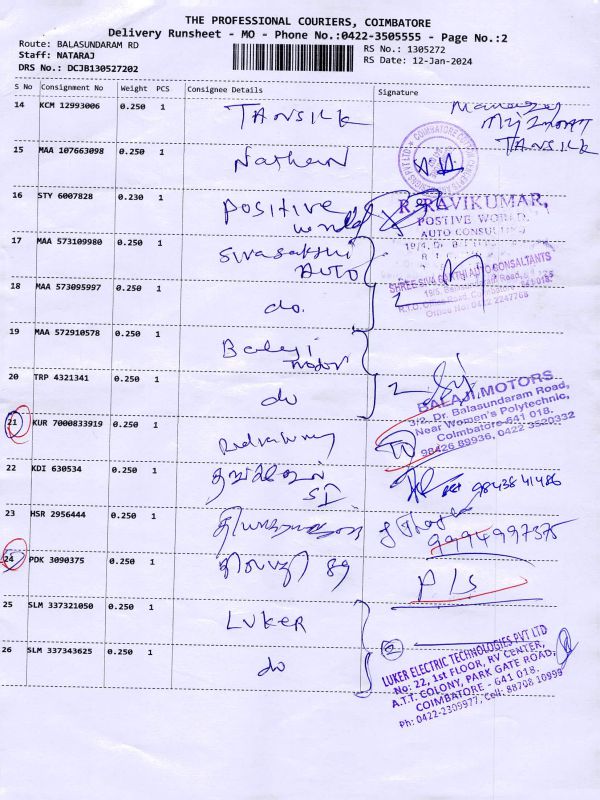 THE PROFESSIONAL COURIERS, COIMBATORE
Delivery Runsheet - MO - Phone No.:0422-3505555 - Page No.:2
Route: BALASUNDARAM RD
RS No.: 1305272
Staff: NATARAJ
RS Date: 12-Jan-2024
DRS No.: DCJB130527202
S No Consignment No Weight PCS Consignee Details Signature
14 KCM 12993006 0.250 1 TANSILK
TANSILK
15 MAA 107663098 0.250 1 Nathan
16 STY 6007828 0.230 1 Positive
World
R. RAVIKUMAR,
POSTIVE WORLD.
AUTO CONSULTING
17 MAA 573109980 0.250 1 Sivasakthi
AUTO
SHREE SIVA SAKTHI AUTO CONSULTANTS
18 MAA 573095997 0.250 1 do.
R.T.O. Office Road, Coimbatore - 641 018.
Office No: 0422 2247766
19 MAA 572910578 0.250 1 Balaji
Motor
20 TRP 4321341 0.250 1 do
BALAJI MOTORS
3/2, Dr. Balasundaram Road,
Near Women's Polytechnic,
Coimbatore-641 018.
98426 89936, 0422 3520332
21 KUR 7000833919 0.250 1
22 KDI 630534 0.250 1
98438 41486
23 HSR 2956444 0.250 1
9994997375
24 PDK 3090375 0.250 1 89
P/s
25 SLM 337321050 0.250 1 LUKER
26 SLM 337343625 0.250 1 do
2
LUKER ELECTRIC TECHNOLOGIES PVT LTD
No: 22, 1st FLOOR, RV CENTER,
A.T.T. COLONY, PARK GATE ROAD,
COIMBATORE - 641 018.
Ph: 0422-2309977, Cell: 88708 10999